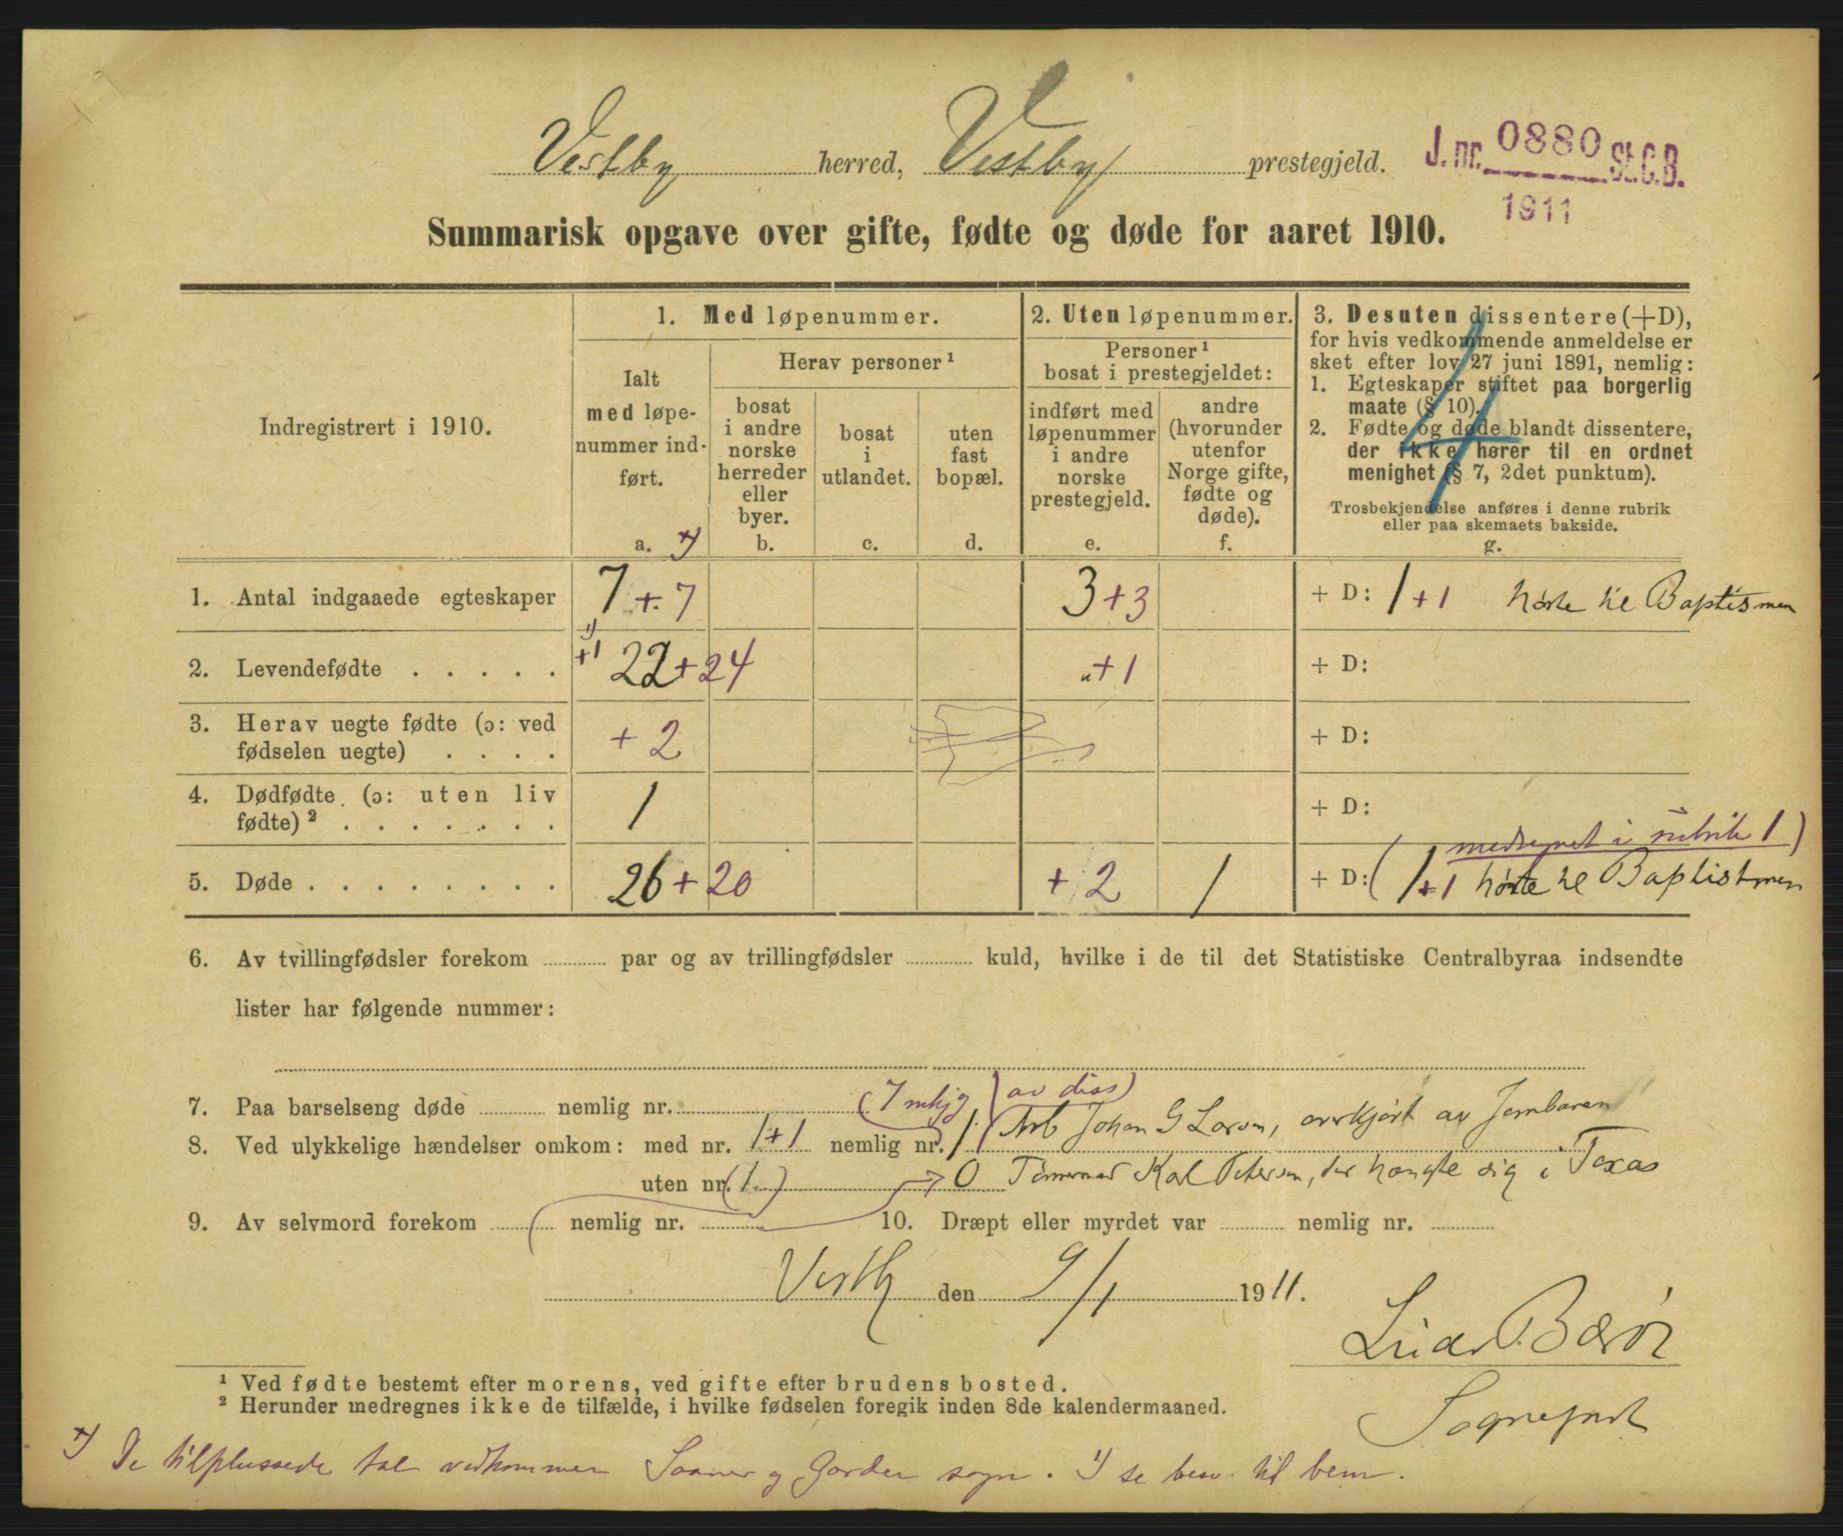 Vestby herred, Vestby prestegjeld.
J. nr. 0880 St.C.B.
1911
Summarisk opgave over gifte, fødte og døde for aaret 1910.
Indregistrert i 1910.
1. Med løpenummer.
Ialt
med løpe-
nummer ind-
ført.
a. *)
Herav personer ¹
bosat
i andre
norske
herreder
eller
byer.
b.
bosat
i
utlandet.
c.
uten
fast
bopæl.
d.
2. Uten løpenummer.
Personer ¹
bosat i prestegjeldet:
indført med
løpenummer
i andre
norske
prestegjeld.
e.
andre
(hvorunder
utenfor
Norge gifte,
fødte og
døde).
f.
3. Desuten dissentere (+D),
for hvis vedkommende anmeldelse er
sket efter lov 27 juni 1891, nemlig:
1. Egteskaper stiftet paa borgerlig
maate (§ 10).
2. Fødte og døde blandt dissentere,
der ikke hører til en ordnet
menighet (§ 7, 2det punktum).
Trosbekjendelse anføres i denne rubrik
eller paa skemaets bakside.
g.
4
1. Antal indgaaede egteskaper 7 + 7 3 + 3 + D: 1 + 1 hørte til Baptismen
2. Levendefødte . . . . . 1) +1 22 + 24 " + 1 + D:
3. Herav uegte fødte (ɔ: ved
fødselen uegte) . . . . + 2 + D:
4. Dødfødte (ɔ: uten liv
fødte) ² . . . . . . . 1 + D:
(medregnet i rubrik 1)
5. Døde . . . . . . . . . 26 + 20 + 2 1 + D: 1 + 1 hørte til Baptismen
6. Av tvillingfødsler forekom par og av trillingfødsler kuld, hvilke i de til det Statistiske Centralbyraa indsendte
lister har følgende nummer:
7. Paa barselseng døde nemlig nr. (7 av diss)
8. Ved ulykkelige hændelser omkom: med nr. 1+1 nemlig nr. 1. Arb Johan G Larsen, overkjørt av Jernbanen
uten nr. (1.) 0 Tømmermand Karl Petersen, der hængte sig i Texas
9. Av selvmord forekom nemlig nr. 10. Dræpt eller myrdet var nemlig nr.
Vestby den 9/1 1911.
Sogneprest
¹ Ved fødte bestemt efter morens, ved gifte efter brudens bosted.
² Herunder medregnes ikke de tilfælde, i hvilke fødselen foregik inden 8de kalendermaaned.
*) De tilplussede tal vedkommer Saaner og Garder sogn. 1) se besv. til bem.